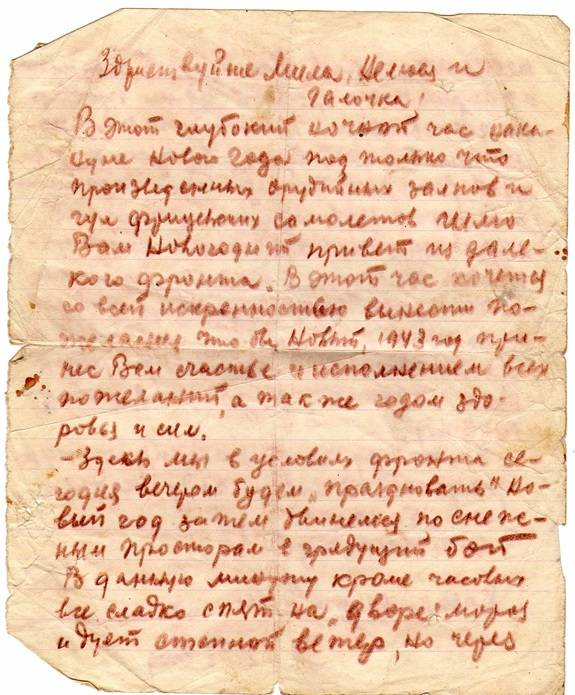 Здраствуйте Мила, Нелюся и
Галочка!
В этот глубокий ночной час нака-
нуне Нового Года под только что
произведенных орудийных залпов и
гул фрицевских самолетов шлю
Вам Новогодний привет из дале-
кого фронта. В этот час хочется
со всей искренностью вынести по-
желания что бы Новый 1943 год при-
нес Вам счастье и исполнением всех
пожеланий, а так же годом здо-
ровья и сил.
- Здесь мы в условиях фронта се-
годня вечером будем „праздновать" Но-
вый год затем двинемся по снеж-
ным просторам в грядущий бой
В данную минуту кроме часовых
все сладко спят, на дворе мороз
и дует степной ветер, но через